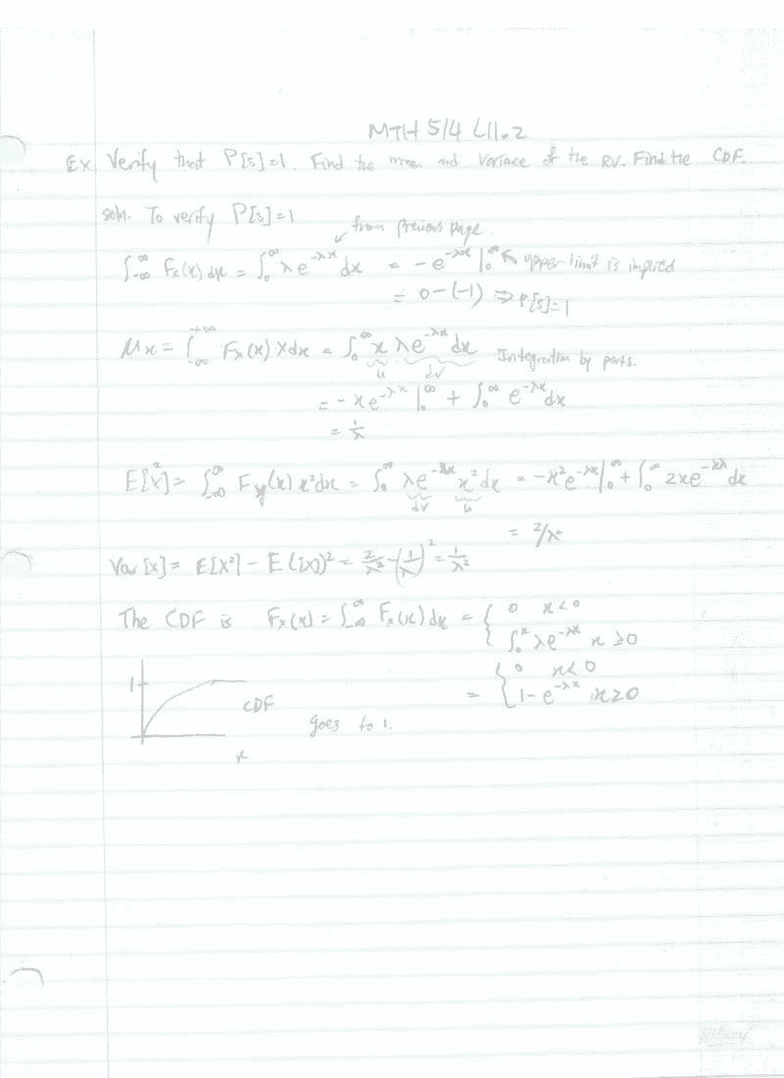 MTH 514 L11.2
Ex Verify that P[s]=1. Find the mean and variance of the RV. Find the CDF.
soln. To verify P[s]=1
from previous page
∫_{-∞}^{∞} Fx(x) dx = ∫_0^∞ λe^{-λx} dx = -e^{-λx} |_0^∞ ← upper limit is implied
= 0-(-1) ⇒ P[s]=1
Mx = ∫_{-∞}^{+∞} Fx(x) x dx = ∫_0^∞ x λe^{-λx} dx Integration by parts.
u dv
= -xe^{-λx} |_0^∞ + ∫_0^∞ e^{-λx} dx
= 1/λ
= ∫_{-∞}^{∞} (x) x² dx = ∫_0^∞ λe^{-λx} x² dx = -x²e^{-λx} |_0^∞ + ∫_0^∞ 2xe^{-λx} dx
dv u
= 2/λ²
Var [x] = E[X²] - E([x])² = 2/λ² - (1/λ)² = 1/λ²
The CDF is Fx(x) = ∫_{-∞}^{∞} Fx(x) dx = { 0 x<0
∫_0^x λe^{-λx} x ≥0
= { 0 x<0
1-e^{-λx} x≥0
1
CDF
goes to 1.
x